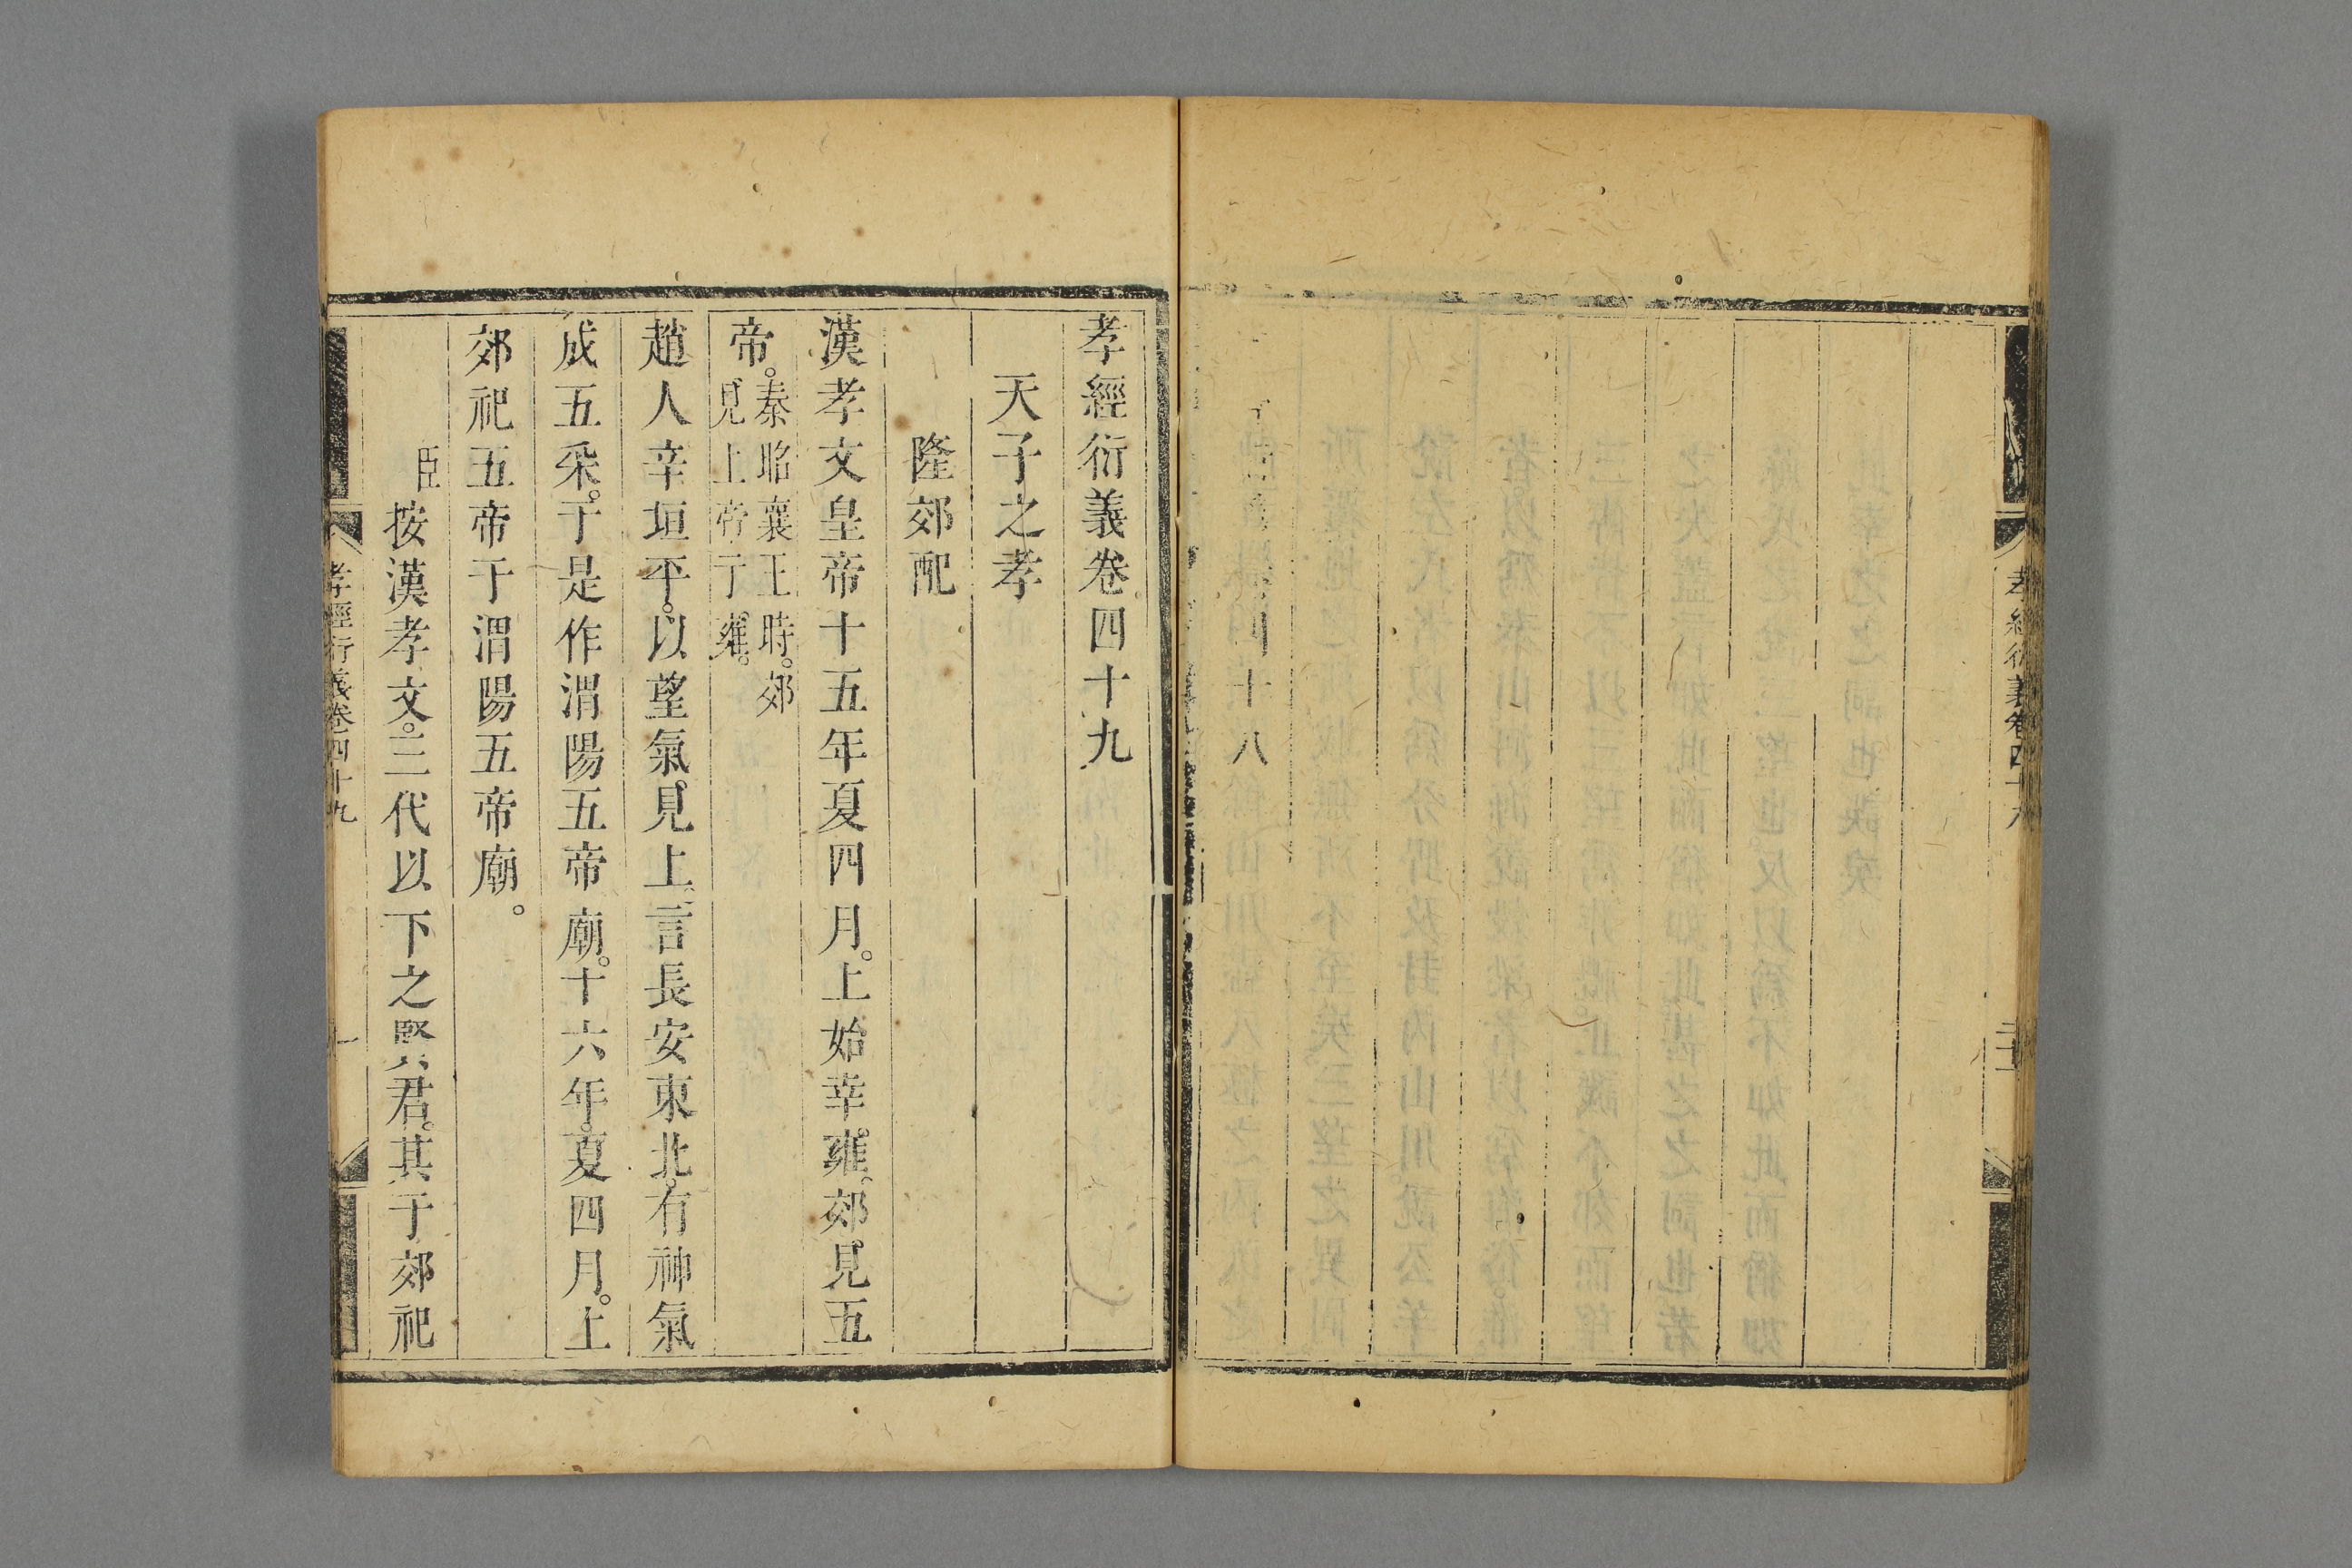 孝經衍義卷四十八
二十二
四十八
孝經衍義卷四十九
天子之孝
隆郊配
漢孝文皇帝十五年夏四月。上始幸雍。郊見五
帝。秦昭襄王時。郊
見上帝于雍。
趙人辛垣平。以望氣見上。言長安東北。有神氣
成五采。于是作渭陽五帝廟。十六年。夏四月。上
郊祀五帝于渭陽五帝廟。
臣按漢孝文。三代以下之賢君。其于郊祀
孝經衍義卷四十九
一